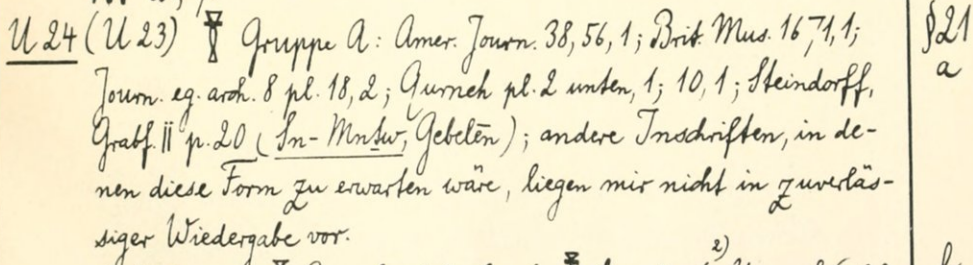 U 24 (U 23) Gruppe A: Amer. Journ. 38, 56, 1; Brit. Mus. 1671, 1; §21
Journ. eg. arch. 8 pl. 18, 2; Qurneh pl. 2 unten, 1; 10, 1; Steindorff, a
Grabf. II p. 20 (Sn-Mnṯw, Gebelēn); andere Inschriften, in de-
nen diese Form zu erwarten wäre, liegen mir nicht in zuverläs-
siger Wiedergabe vor.
2)